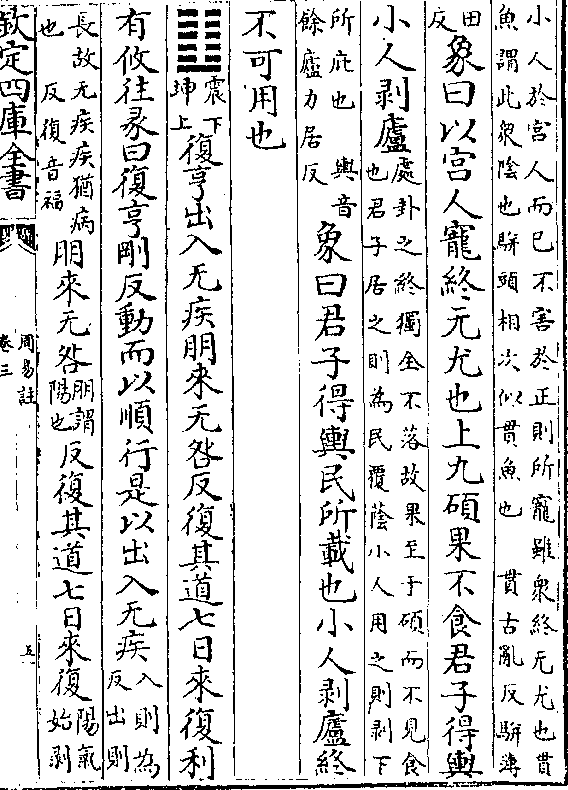 小人於宫人而已不害於正則所寵雖衆終无尤也貫
魚謂此衆陰也駢頭相次似貫魚也　貫古亂反駢薄
田
反
象曰以宫人寵終无尤也上九碩果不食君子得輿
小人剥廬
處卦之終獨全不落故果至于碩而不見食
也君子居之則為民覆蔭小人用之則剥下
所庇也　輿音
餘廬力居反
象曰君子得輿民所載也小人剥廬終
不可用也
䷗
震下
坤上
復亨出入无疾朋來无咎反復其道七日來復利
有攸往彖曰復亨剛反動而以順行是以出入无疾
入則為
反出則
長故无疾疾猶病
也　反復音福
朋來无咎
朋謂
陽也
反復其道七日來復
陽氣
始剥
欽定四庫全書
周易註
卷三
五